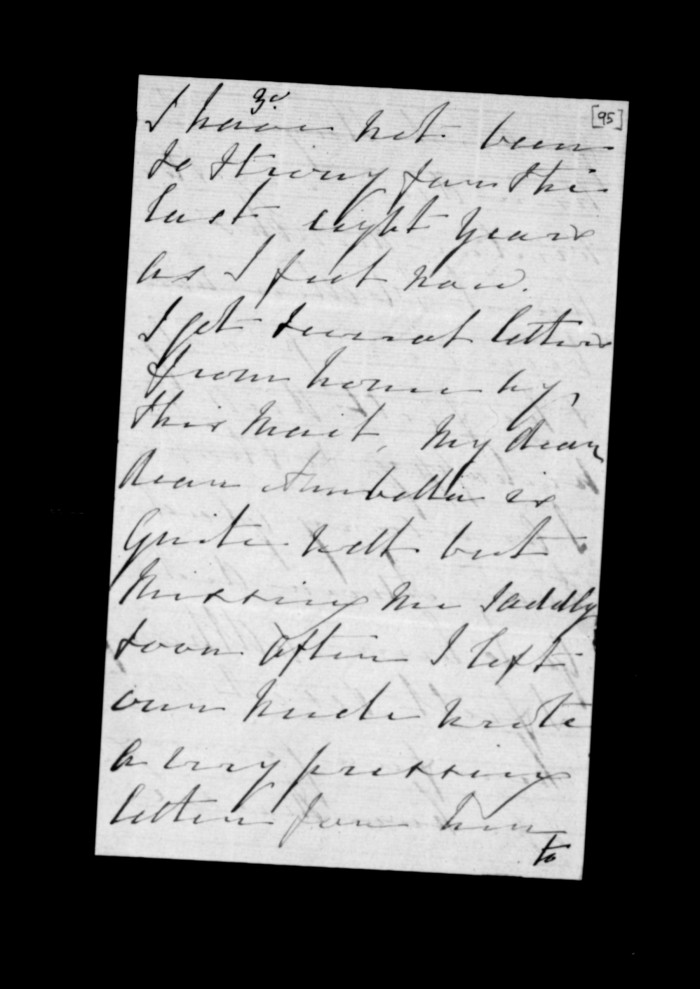 3d
[95]
I have not been
so strong for this
last eight years
as I feel now.
I got several letters
from home by,
this Mail, My dear
dear Annbella is
Quite well but
Missing me sadly
soon after I left
our Uncle wrote
a very pressing
letter for her
to